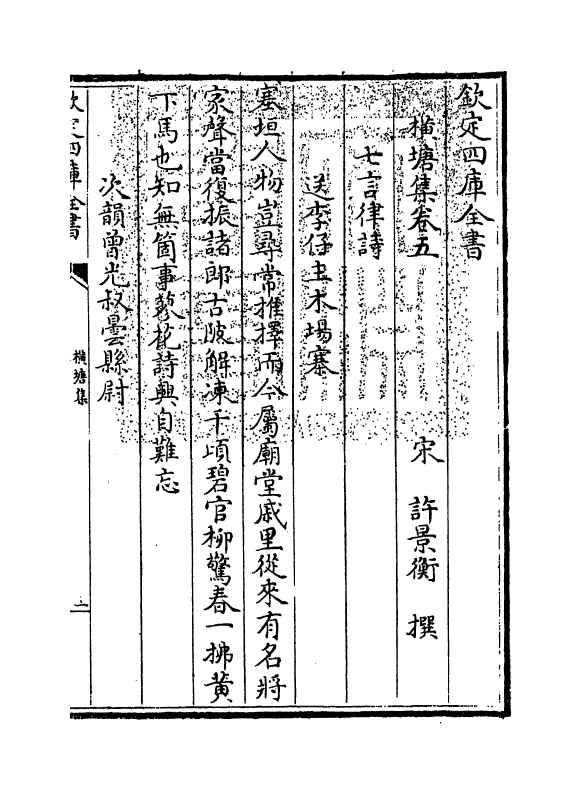 欽定四庫全書
橫塘集卷五　宋　許景衡　撰
七言律詩
送李仔主木場寨
塞垣人物豈尋常推擇而今屬廟堂戚里從來有名將
家聲當復振諸郎古陂解凍千頃碧官柳驚春一拂黃
下馬也知無箇事花詩興自難忘
次韻曾光叔曇縣尉
欽定四庫全書　橫塘集　一